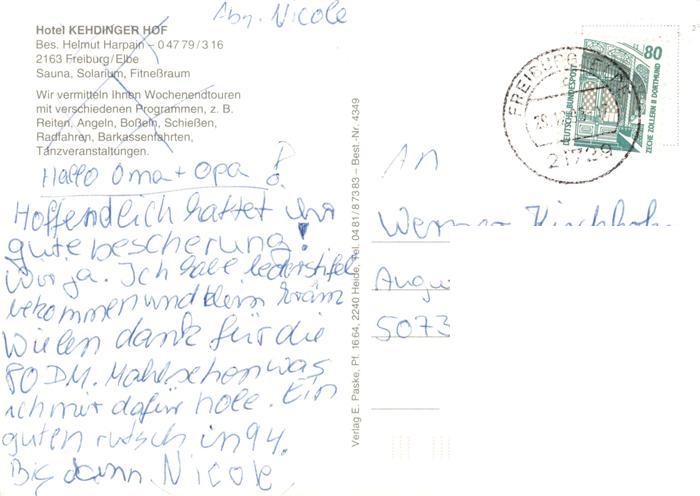 Abn. Nicole
Hotel KEHDINGER HOF
Bes. Helmut Harpain – 04779/316
2163 Freiburg/Elbe
Sauna, Solarium, Fitneßraum
Wir vermitteln Ihnen Wochenendtouren
mit verschiedenen Programmen, z. B.
Reiten, Angeln, Boßeln, Schießen,
Radfahren, Barkassenfahrten,
Tanzveranstaltungen.
Hallo Oma + Opa!
Hoffendlich hattet ihr
gute bescherung!
Wir ja. Ich habe lederstifel
bekommen und
Wielen dank für die
80 DM. Mahl sehen was
ich mir dafür hole. Ein
guten rutsch in 94.
Bis dann Nicole
Verlag E. Paske, Pf. 1664, 2240 Heide, Tel. 0481/87383 – Best.-Nr. 4349
80
DEUTSCHE BUNDESPOST
ZECHE ZOLLERN II DORTMUND
FREIBURG, ELBE
21729
An
Werner
Augu
5073